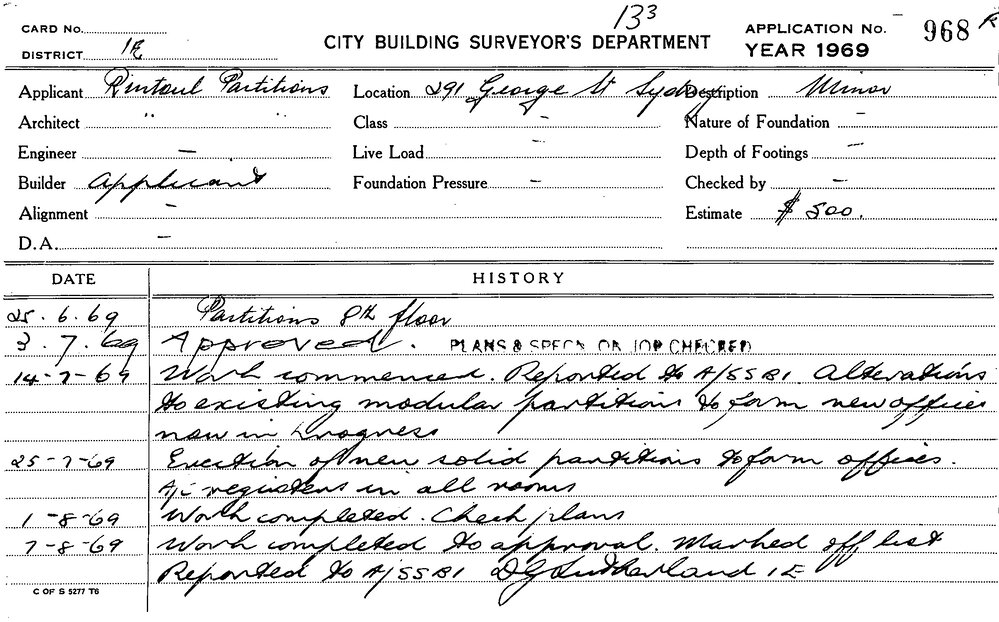 133
CARD No.
CITY BUILDING SURVEYOR'S DEPARTMENT
APPLICATION No. 968 R
DISTRICT 1E
YEAR 1969
Applicant Rintoul Partitions Location 291 George St Sydney Description Minor
Architect " " Class - Nature of Foundation -
Engineer - Live Load - Depth of Footings -
Builder Applicant Foundation Pressure - Checked by -
Alignment - Estimate $500.
D.A. -
DATE HISTORY
25.6.69 Partitions 8th floor
3.7.69 Approved. PLANS & SPECN ON JOB CHECKED
14-7-69 Work commenced. Reported to A/SSBI. Alterations
to existing modular partitions to form new offices
now in progress
25-7-69 Erection of new solid partitions to form offices.
A/C registers in all rooms
1-8-69 Work completed. Check plans
7-8-69 Work completed to approval. Marked off list
Reported to A/SSBI DG Sutherland 1E
C OF S 5277 T6